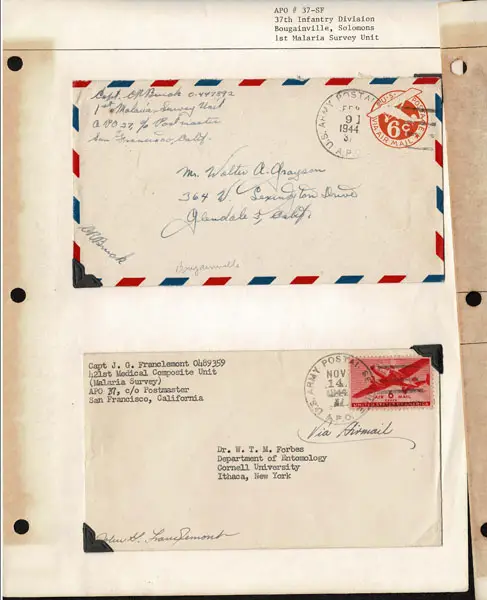 APO # 37-SF
37th Infantry Division
Bougainville, Solomons
1st Malaria Survey Unit
Capt.
1st Malaria Survey Unit
APO 37, c/o Postmaster
San Francisco, Calif.
U.S. ARMY POSTAL
FEB
9
1944
37
A.P.O.
U.S. POSTAGE
6¢
VIA AIR MAIL
Mr. Walter A. Grayson
364 W. Lexington Drive
Glendale 5, Calif.
Bougainville
Capt J. G. Franclemont 0489359
421st Medical Composite Unit
(Malaria Survey)
APO 37, c/o Postmaster
San Francisco, California
U.S. ARMY POSTAL
NOV
14
1944
37
A.P.O.
6
AIR MAIL
UNITED STATES OF AMERICA
Via Airmail
Dr. W. T. M. Forbes
Department of Entomology
Cornell University
Ithaca, New York
John G. Franclemont